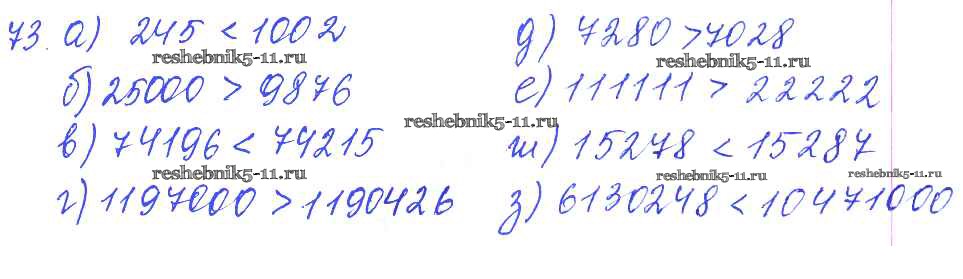 73. а) 245 < 1002
б) 25000 > 9876
в) 74196 < 74215
г) 1197000 > 1190426
д) 7280 > 7028
е) 111111 > 22222
ж) 15278 < 15287
з) 6130248 < 10471000
reshebnik5-11.ru
reshebnik5-11.ru
reshebnik5-11.ru
reshebnik5-11.ru
reshebnik5-11.ru
reshebnik5-11.ru